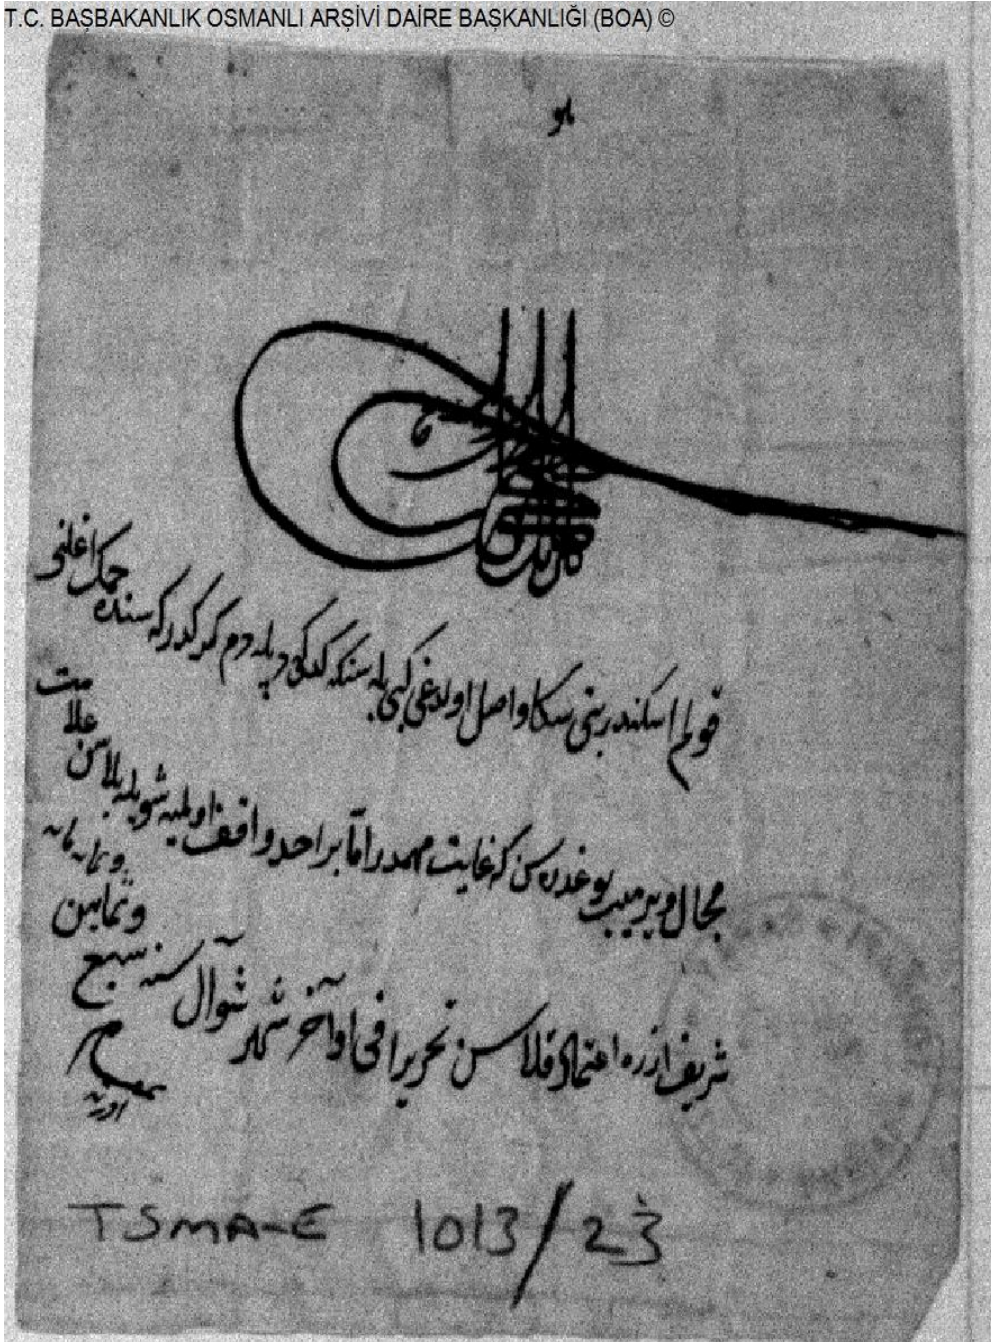 T.C. BAŞBAKANLIK OSMANLI ARŞİVİ DAİRE BAŞKANLIĞI (BOA) ©
هو
قولم اسكندر بتى سكا واصل اولدغى كبى بله سنكه كدكى ديله دم كوكدر كه سنده جمك اغلنه
مجال ويرميب بوغدره سن كه غايت مهمدر امّا بر احد واقف اولميه شويله بلاسن علامت
شريف اوزره اعتماد قلاسن تحريرا فى اواخر شهر شوّال سنه سبع
وثمانين
وثمانمايه
بمقام
ادرنه
TSMA-E 1013/23